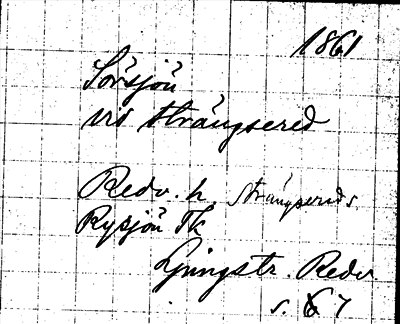 1861
Sörsjön
vid Strängsered
Redv. h. Strängsereds
Rysjön Tk
Ljungstr. Redv
s. 67